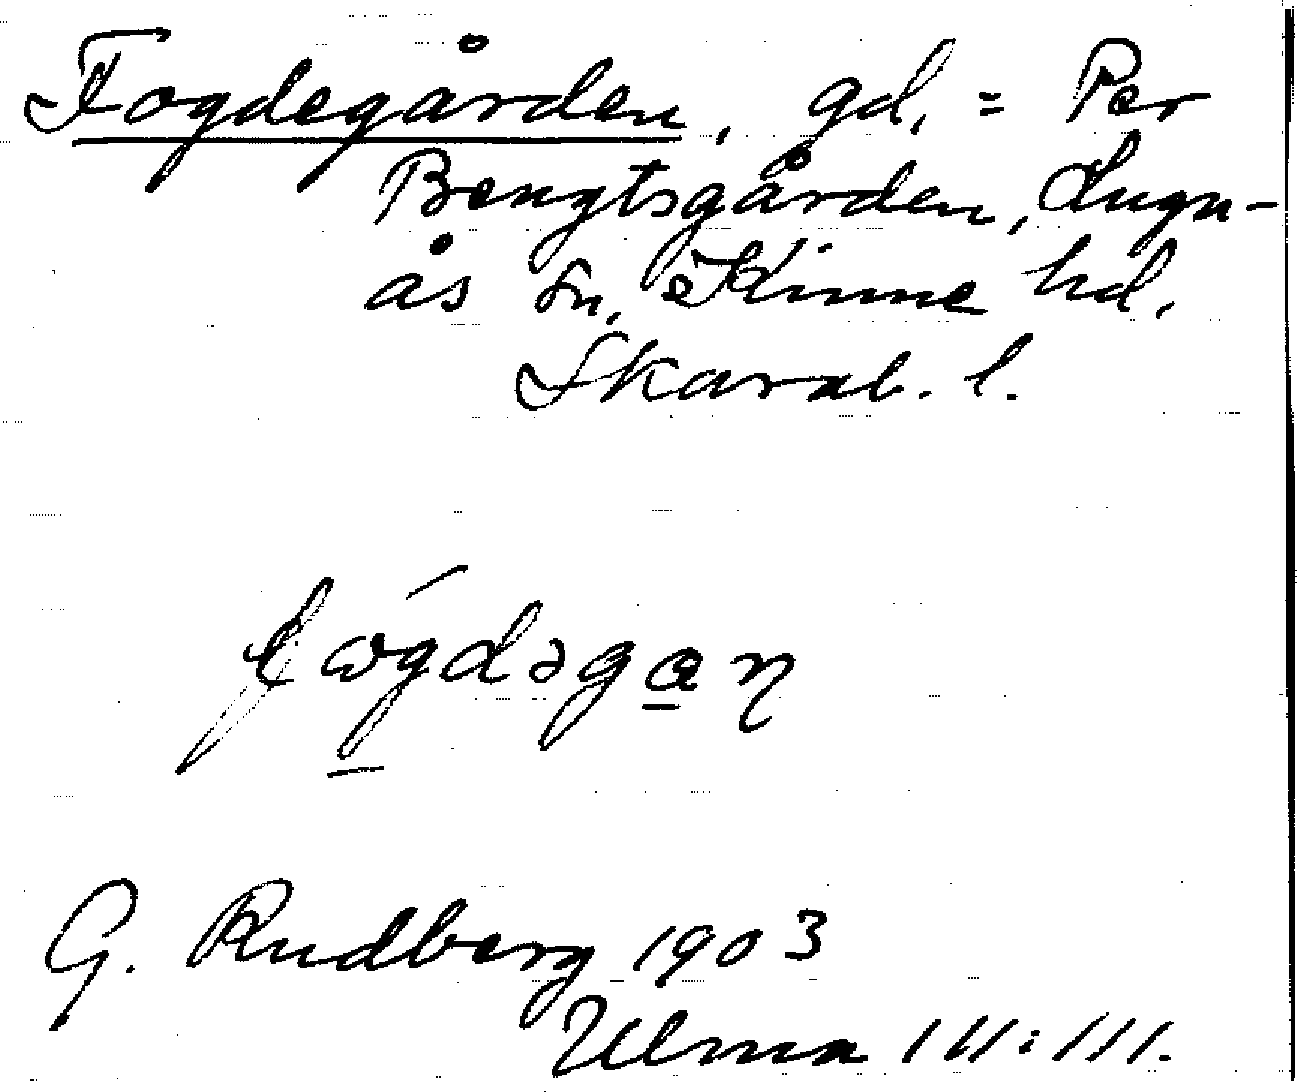 Fogdegården, gd, = Per
Bengtsgården, Lugn-
ås sn, Kinne hd,
Skarab. l.
G. Rudberg 1903
Ulma 111:111.